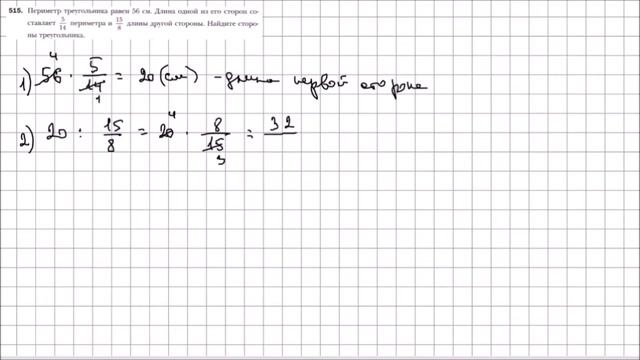 515. Периметр треугольника равен 56 см. Длина одной из его сторон со-
ставляет 5/14 периметра и 15/8 длины другой стороны. Найдите сторо-
ны треугольника.
1) 56 4 · 5/14 1 = 20 (см) - длина первой стороне
2) 20 : 15/8 = 20 4 · 8/15 3 = 32